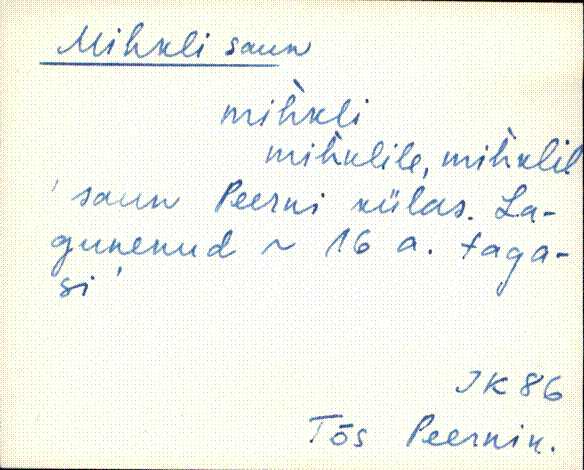 Mihkli saun
mih̀kli
mih̀klile, mih̀klil
'saun Peerni külas. La-
gunenud ~ 16 a. taga-
si'
JK 86
Tõs Peernik.